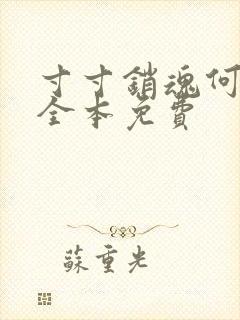 寸寸銷魂何
全本免費
蘇重光